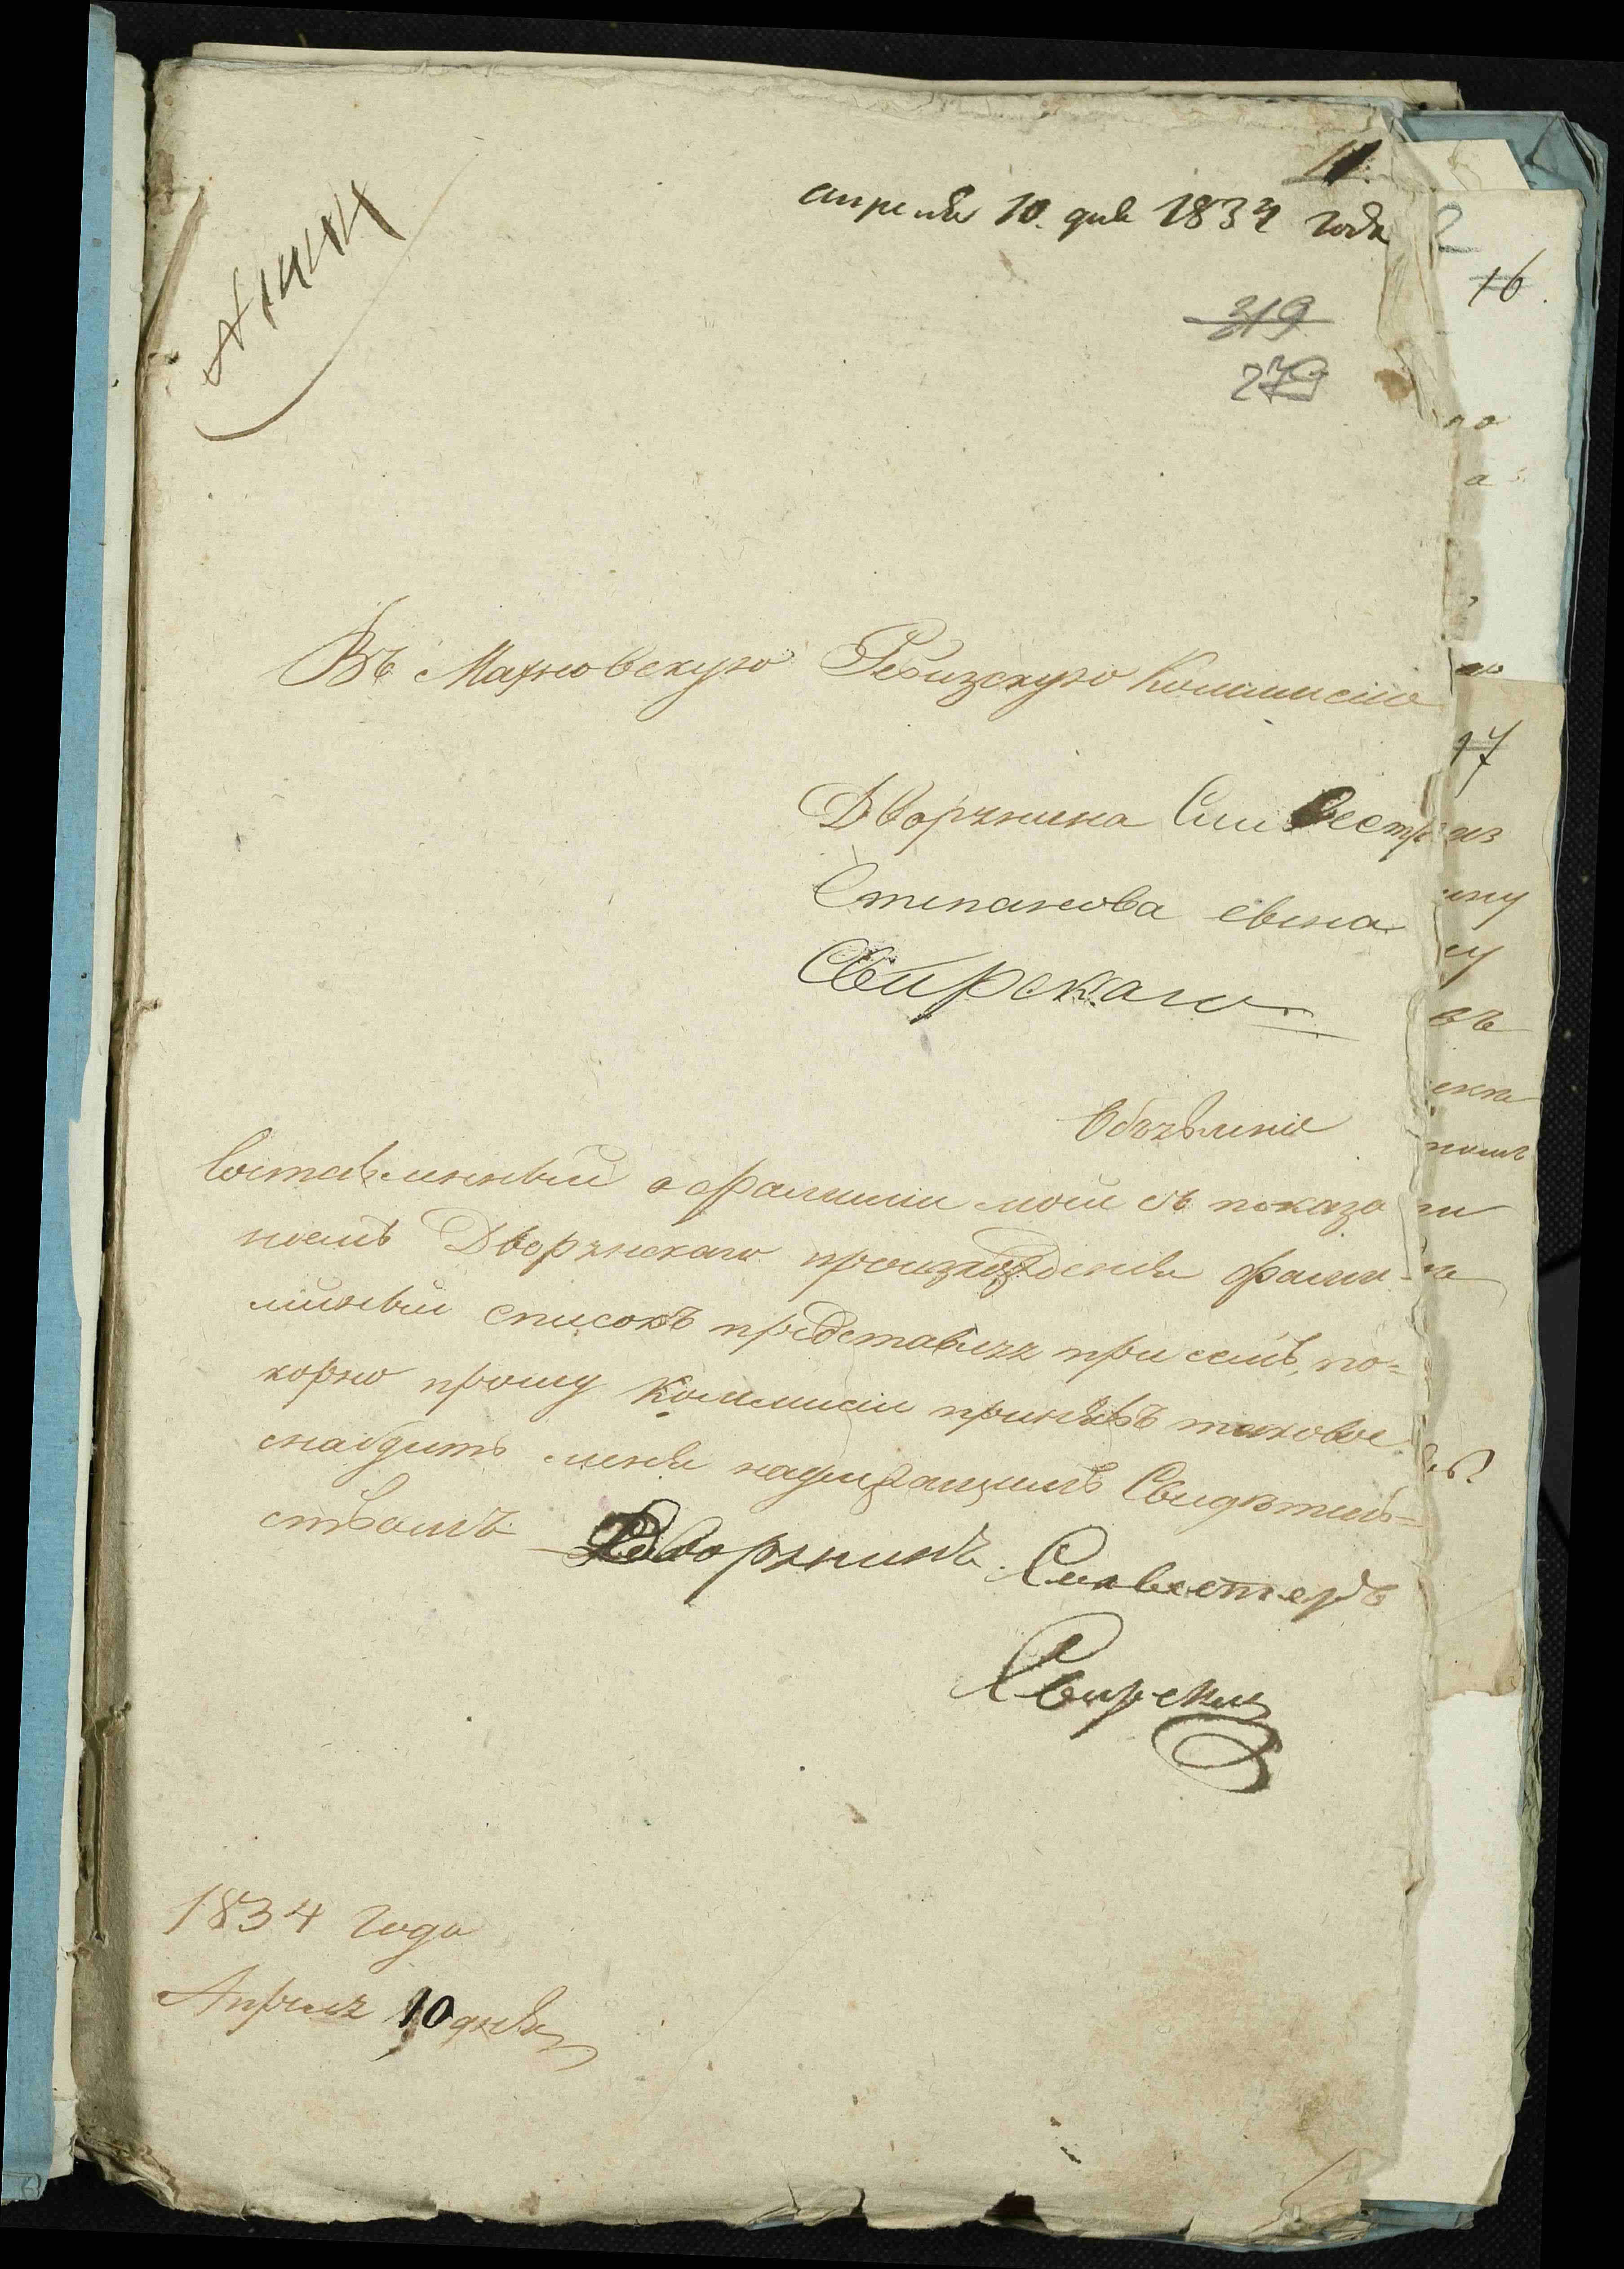 11.
апреля 10. дня 1834 года
319
279
Въ Махновскую Ревизскую Коммисию
Дворянина Сильвестра
Степанова сына
Свирскаго
Объявление
Составленный о фамилии моей съ показа
ниемъ Дворянскаго произхождения фами-
лийный списокъ представляя при семъ, по=
корно прошу Коммисии принявъ таковое
снабдить меня надлежащимъ Свидетель=
ствомъ Дворянинъ Сильвестеръ
Свирский
1834 года
Апреля 10 дня
16.
17